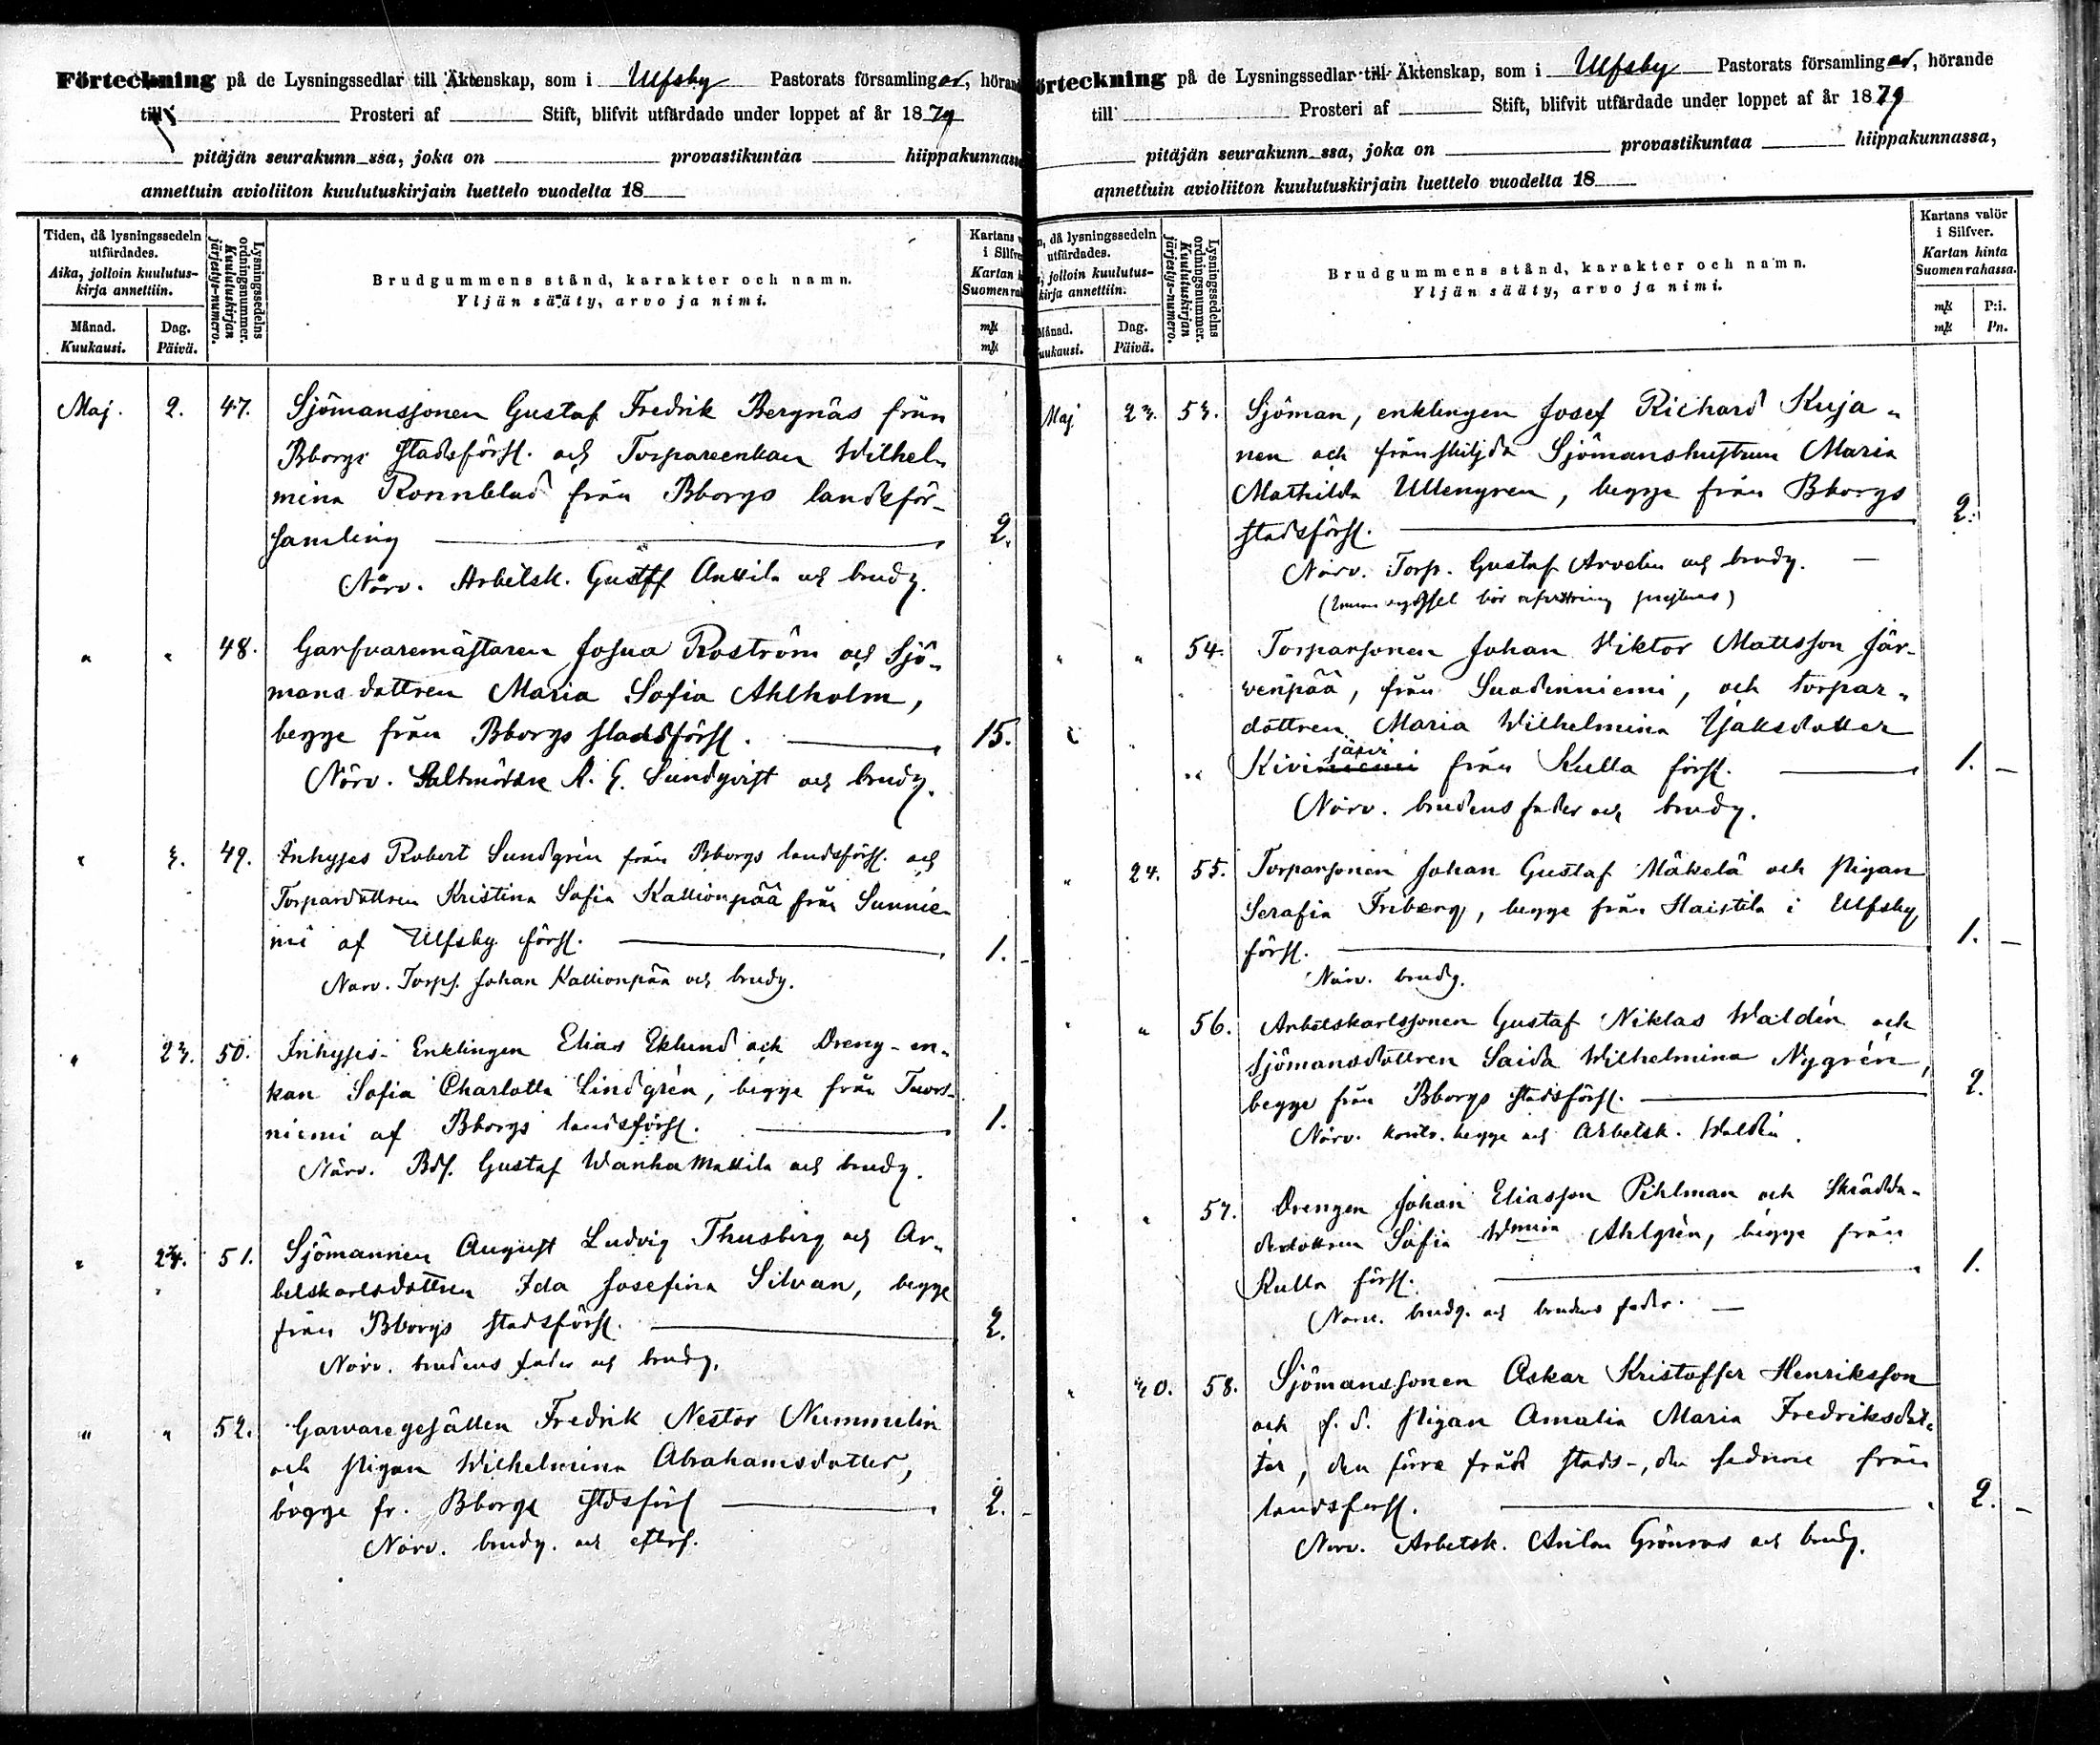 Förteckning på de Lysningssedlar till Äktenskap, som i Ulfsby Pastorats församlingar, hörande
till Prosteri af Stift, blifvit utfärdade under loppet af år 1879
pitäjän seurakunn ssa, joka on provastikuntaa hiippakunnassa
annettuin avioliiton kuulutuskirjain luettelo vuodelta 18
Tiden, då lysningssedeln utfärdades.
Aika, jolloin kuulutus-kirja annettiin.
Månad. Kuukausi.
Dag. Päivä.
Lysningssedelns ordningsnummer.
Kuulutuskirjan järjestys-numero.
Brudgummens stånd, karakter och namn.
Yljän sääty, arvo ja nimi.
Kartans v
i Silfve
Kartan h
Suomen rah
mk
mk
Maj. 2. 47. Sjömanssonen Gustaf Fredrik Bergnäs från
Bborgs stadsförs. och Torpareenkan Wilhel-
mina Ronnblad från Bborgs landsför-
samling 2.
Närv. Arbetsk. Gustaf Anttila och brudg.
" " 48. Garfvaremästaren Josua Roström och Sjö-
mansdottren Maria Sofia Ahlholm,
begge från Bborgs stadsförs. 15.
Närv. A. G. Sundqvist och brudg.
" 3. 49. Inhyses Robert Sundgrén från Bborgs landsförs. och
Torpardottren Kristina Sofia Kallionpää från Sunnie-
mi af Ulfsby förs. 1. -
Närv. Torp. Johan Kallionpää och brudg.
" 23. 50. Inhyses-Enklingen Elias Eklund och Dreng-en-
kan Sofia Charlotta Lindgrén, begge från Tuors-
niemi af Bborgs landsförs. 1.
Närv. Bds. Gustaf Wanha Mattila och brudg.
" 24. 51. Sjömannen August Ludvig Thusberg och Ar-
betskarlsdottren Ida Josefina Silvan, begge
från Bborgs stadsförs. 2.
Närv. brudens fader och brudg.
" " 52. Garvaregesällen Fredrik Nestor Nummelin
och pigan Wilhelmina Abrahamsdotter,
begge fr. Bborgs stdsförs 2. -
Närv. brudg. och
Förteckning på de Lysningssedlar till Äktenskap, som i Ulfsby Pastorats församlingar, hörande
till Prosteri af Stift, blifvit utfärdade under loppet af år 1879
pitäjän seurakunn ssa, joka on provastikuntaa hiippakunnassa,
annettuin avioliiton kuulutuskirjain luettelo vuodelta 18
n, då lysningssedeln utfärdades.
jolloin kuulutus-kirja annettiin.
Månad. uukausi.
Dag. Päivä.
Lysningssedelns ordningsnummer.
Kuulutuskirjan järjestys-numero.
Brudgummens stånd, karakter och namn.
Yljän sääty, arvo ja nimi.
Kartans valör
i Silfver.
Kartan hinta
Suomen rahassa.
mk P:i.
mk Pn.
Maj 23. 53. Sjöman, enklingen Josef Richard Kuja-
nen och frånskiljda Sjömanshustrun Maria
Mathilda Ullengren, begge från Bborgs
stadsförs. 2.
Närv. Torp. Gustaf Arvelin och brudg.
" " 54. Torparsonen Johan Viktor Mattsson Jär-
venpää, från Suodenniemi, och torpar-
dottren Maria Wilhelmina Isaksdotter
järvi
Kiviniemi från Kulla förs. 1. -
Närv. brudens fader och brudg.
" 24. 55. Torparsonen Johan Gustaf Mäkelä och pigan
Serafia Friberg, begge från Haistila i Ulfsby
förs. 1. -
Närv. brudg.
" " 56. Arbetskarlssonen Gustaf Niklas Waldén och
sjömansdottren Saida Wilhelmina Nygrén,
begge från Bborgs stadsförs. 2.
Närv. begge och Arbetsk. Waldén.
" " 57. Drengen Johan Eliasson Pihlman och Skrädda-
redottren Sofia Wmina Ahlgrén, begge från
Kulla förs. 1.
Närv. brudg. och brudens fader.
" 30. 58. Sjömanssonen Oskar Kristoffer Henriksson
och f. d. pigan Amalia Maria Fredriksdot-
ter, den förre från stads-, den sednare från
landsförs. 2. -
Närv. Arbetsk. Anton Grönroos och brudg.